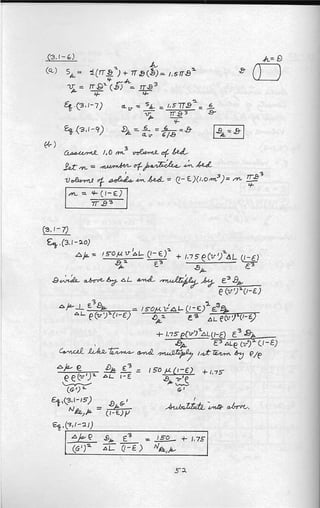 (3.1-6) h=D
(a.) Sₚ = 2(πD²/4) + πD(D) = 1.5πD² D
vₚ = πD²/4 (D) = πD³/4
Eq (3.1-7) aᵥ = Sₚ/vₚ = 1.5πD²/(πD³/4) = 6/D
Eq (3.1-9) Dₚ = 6/aᵥ = 6/(6/D) = D Dₚ = D
(b)
assume 1.0 m³ volume of bed
Let n = number of particles in bed
Volume of solids in bed = (1-ε)(1.0 m³) = n πD³/4
n = 4(1-ε)/πD³
(3.1-7)
Eq. (3.1-20)
Δp = 150μv'ΔL/Dₚ² (1-ε)²/ε³ + 1.75ρ(v')²ΔL/Dₚ (1-ε)/ε³
Divide above by ΔL and multiply by ε³Dₚ/ρ(v')²(1-ε)
Δp 1/ΔL ε³Dₚ/ρ(v')²(1-ε) = 150μv'ΔL/Dₚ² (1-ε)²/ε³ ε³Dₚ/ΔLρ(v')²(1-ε)
+ 1.75ρ(v')²ΔL(1-ε)/Dₚε³ ε³Dₚ/ΔLρ(v')²(1-ε)
Cancel like terms and multiply 1st term by ρ/ρ
Δpρ/ρρ(v')² Dₚ/ΔL ε³/1-ε = 150μ(1-ε)/Dₚv'ρ + 1.75
(G')² G'
Eq.(3.1-15) N_Re,p = DₚG'/(1-ε)μ substitute into above.
Eq.(3.1-21)
Δpρ/(G')² Dₚ/ΔL ε³/(1-ε) = 150/N_Re,p + 1.75
52